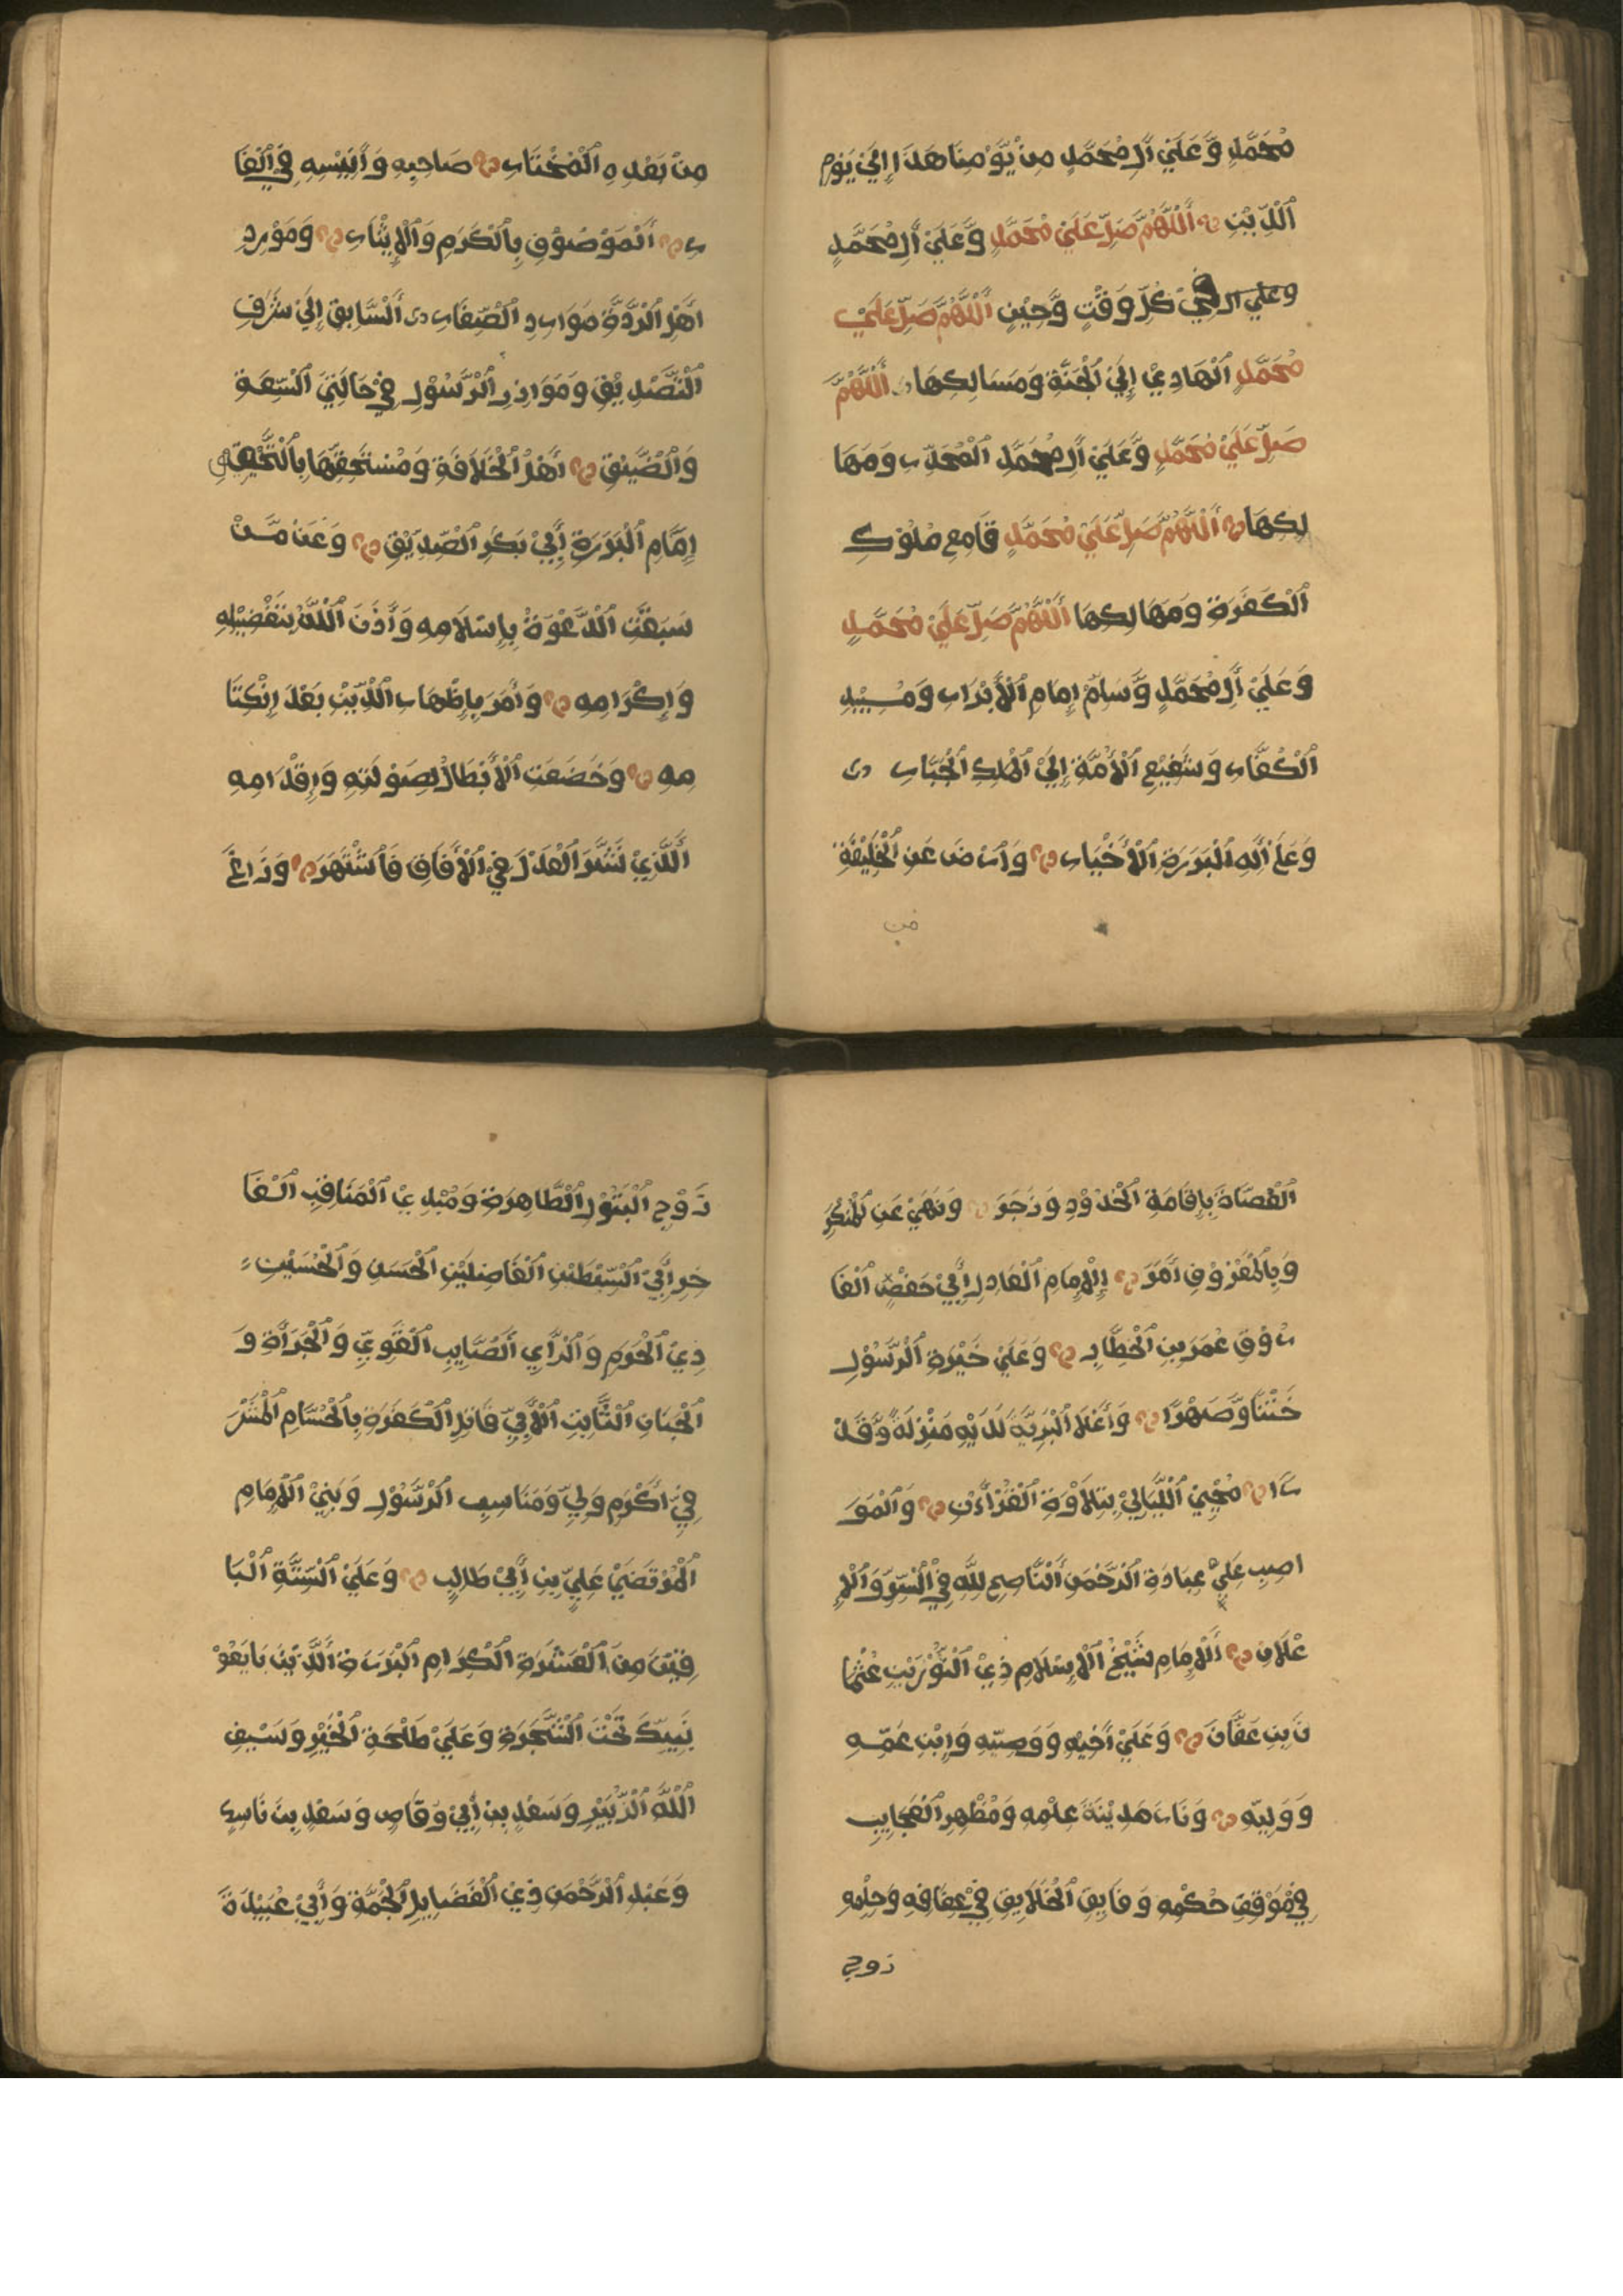 مُحَمَّدٍ وَّعَلَيْ أَلِ مُحَمَّدٍ مِنْ يَّوْمِنَا هَذَا إِلَيْ يَوْمِ
اَلدِّيْنِ اَللَّهُمَّ صَلِّ عَلَيْ مُحَمَّدٍ وَّعَلَيْ أَلِ مُحَمَّدٍ
وعلي ال فِيْ كُلِّ وَقْتٍ وَّحِيْنٍ اَللَّهُمَّ صَلِّ عَلَيْ
مُحَمَّدٍ اَلْهَادِيْ إِلَيْ اَلْجَنَّةِ وَمَسَالِكِهَا اَللَّهُمَّ
صَلِّ عَلَيْ مُحَمَّدٍ وَّعَلَيْ أَلِ مُحَمَّدٍ اَلْمُحَذِّرِ وَمَهَا
لِكِهَا اَللَّهُمَّ صَلِّ عَلَيْ مُحَمَّدٍ قَامِعِ مُلُوْكِ
اَلْكَفَرَةِ وَمَهَالِكِهَا اَللَّهُمَّ صَلِّ عَلَيْ مُحَمَّدٍ
وَعَلَيْ أَلِ مُحَمَّدٍ وَّسَلِّمْ إِمَامِ اَلْأَبْرَارِ وَمُبِيْدِ
اَلْكُفَّارِ وَشَفِيْعِ اَلْأُمَّةِ إِلَيْ اَلْمَلِكِ اَلْجَبَّارِ
وَعَلَيْ أَلِهِ اَلْبَرَرَةِ اَلْأَخْيَارِ وَارْضَ عَنِ اَلْخَلِيْفَةِ
من
مِنْ بَعْدِهِ اَلْمُخْتَارِ صَاحِبِهِ وَأَنِيْسِهِ فِيْ اَلْغَا
رِ اَلْمَوْصُوْفِ بِالْكَرَمِ وَالْإِيْثَارِ وَمَوْرِدِ
أَهْلِ اَلرِّدَّةِ مَوَارِدِ اَلصِّغَارِ اَلسَّابِقِ إِلَيْ شَرَفِ
اَلتَّصْدِيْقِ وَمَوَازِرِ اَلرَّسُوْلِ فِيْ حَالَتَيْ اَلسَّعَةِ
وَالضَّيْقِ أَهْلِ اَلْخِلَافَةِ وَمُسْتَحِقِّهَا بِالتَّحْقِيْقِ
إِمَامِ اَلْبَرَرَةِ أَبِيْ بَكْرِ اَلصِّدِّيْقِ وَعَنْ مَّنْ
سَبَقَتِ اَلدَّعْوَةُ بِإِسْلَامِهِ وَأَذَنَ اَللَّهُ بِتَفْضِيْلِهِ
وَإِكْرَامِهِ وَأَمَرَ بِإِظْهَارِ اَلدِّيْنِ بَعْدَ إِنْكِتَا
مِهِ وَخَضَعَتِ اَلْأَبْطَالُ لِصَوْلَتِهِ وَإِقْدَامِهِ
اَلَّذِيْ نَشَرَ اَلْعَدْلَ فِيْ اَلْأَفَاقِ فَاشْتَهَرَ وَزَاغَ
اَلْعُصَاةَ بِإِقَامَةِ اَلْحُدُوْدِ وَزَجَرَ وَنَهَيْ عَنِ اَلْمُنْكَرِ
وَبِالْمَعْرُوْفِ أَمَرَ اَلْإِمَامِ اَلْعَادِلِ أَبِيْ حَفْصٍ اَلْفَا
رُوْقِ عُمَرَ بْنِ اَلْخَطَّابِ وَعَلَيْ خَيْرَةِ اَلرَّسُوْلِ
خَتْنًا وَّصِهْرًا وَأَعْلَا اَلْبَرِيَّةِ لَدَيْهِ مَنْزِلَةً وَّقَدْ
رًا مُحْيِيْ اَللَّيَالِيْ بِتِلَاوَةِ اَلْقُرْأَنِ وَالْمُوَ
اصِبِ عَلَيْ عِبَادَةِ اَلرَّحْمَنِ اَلنَّاصِحِ لِلَّهِ فِيْ اَلسِّرِّ وَالْإِ
عْلَانِ اَلْإِمَامِ شَيْخِ اَلْإِسْلَامِ ذِيْ اَلنُّوْرَيْنِ عُثْمَا
نَ بْنِ عَفَّانَ وَعَلَيْ أَخِيْهِ وَوَصِيِّهِ وَابْنِ عَمِّهِ
وَوَلِيِّهِ وَبَابِ مَدِيْنَةِ عِلْمِهِ وَمُظْهِرِ اَلْعَجَايِبِ
فِيْ مَوْقِفِ حُكْمِهِ وَفَايِقِ اَلْخَلَايِقِ فِيْ عِفَافِهِ وَحِلْمِهِ
زوج
زَوْجِ اَلْبَتُوْلِ اَلطَّاهِرَةِ وَمُبْدِيْ اَلْمَنَاقِبِ اَلْفَا
خِرِ أَبِيْ اَلسِّبْطَيْنِ اَلْفَاضِلَيْنِ اَلْحَسَنِ وَالْحُسَيْنِ
ذِيْ اَلْحَزْمِ وَالرَّأْيِ اَلصَّايِبِ اَلْقَوِيِّ وَالْجَرَأَةِ وَ
اَلْجَنَانِ اَلثَّابِتِ اَلْأَبِيِّ قَاتِلِ اَلْكَفَرَةِ بِالْحُسَامِ اَلْمُشَرْ
فِيِّ أَكْرَمِ وَلِيٍّ وَمَنَاسِبِ اَلرَّسُوْلِ وَبَنِيْ اَلْإِمَامِ
اَلْمُرْتَضَيْ عَلِيِّ بْنِ أَبِيْ طَالِبٍ وَعَلَيْ اَلسِّتَّةِ اَلْبَا
قِيْنَ مِنَ اَلْعَشَرَةِ اَلْكِرَامِ اَلْبَرَرَةِ اَلَّذِيْنَ بَايَعُوْ
نَبِيِّكَ تَحْتَ اَلشَّجَرَةِ وَعَلَيْ طَلْحَةِ اَلْخَيْرِ وَسَيْفِ
اَللَّهِ اَلزُّبَيْرِ وَسَعْدِ بْنِ أَبِيْ وَقَّاصٍ وَسَعْدِ بْنِ
وَعَبْدِ اَلرَّحْمَنِ ذِيْ اَلْفَضَايِلِ اَلْجَمَّةِ وَأَبِيْ عُبَيْدَةَ